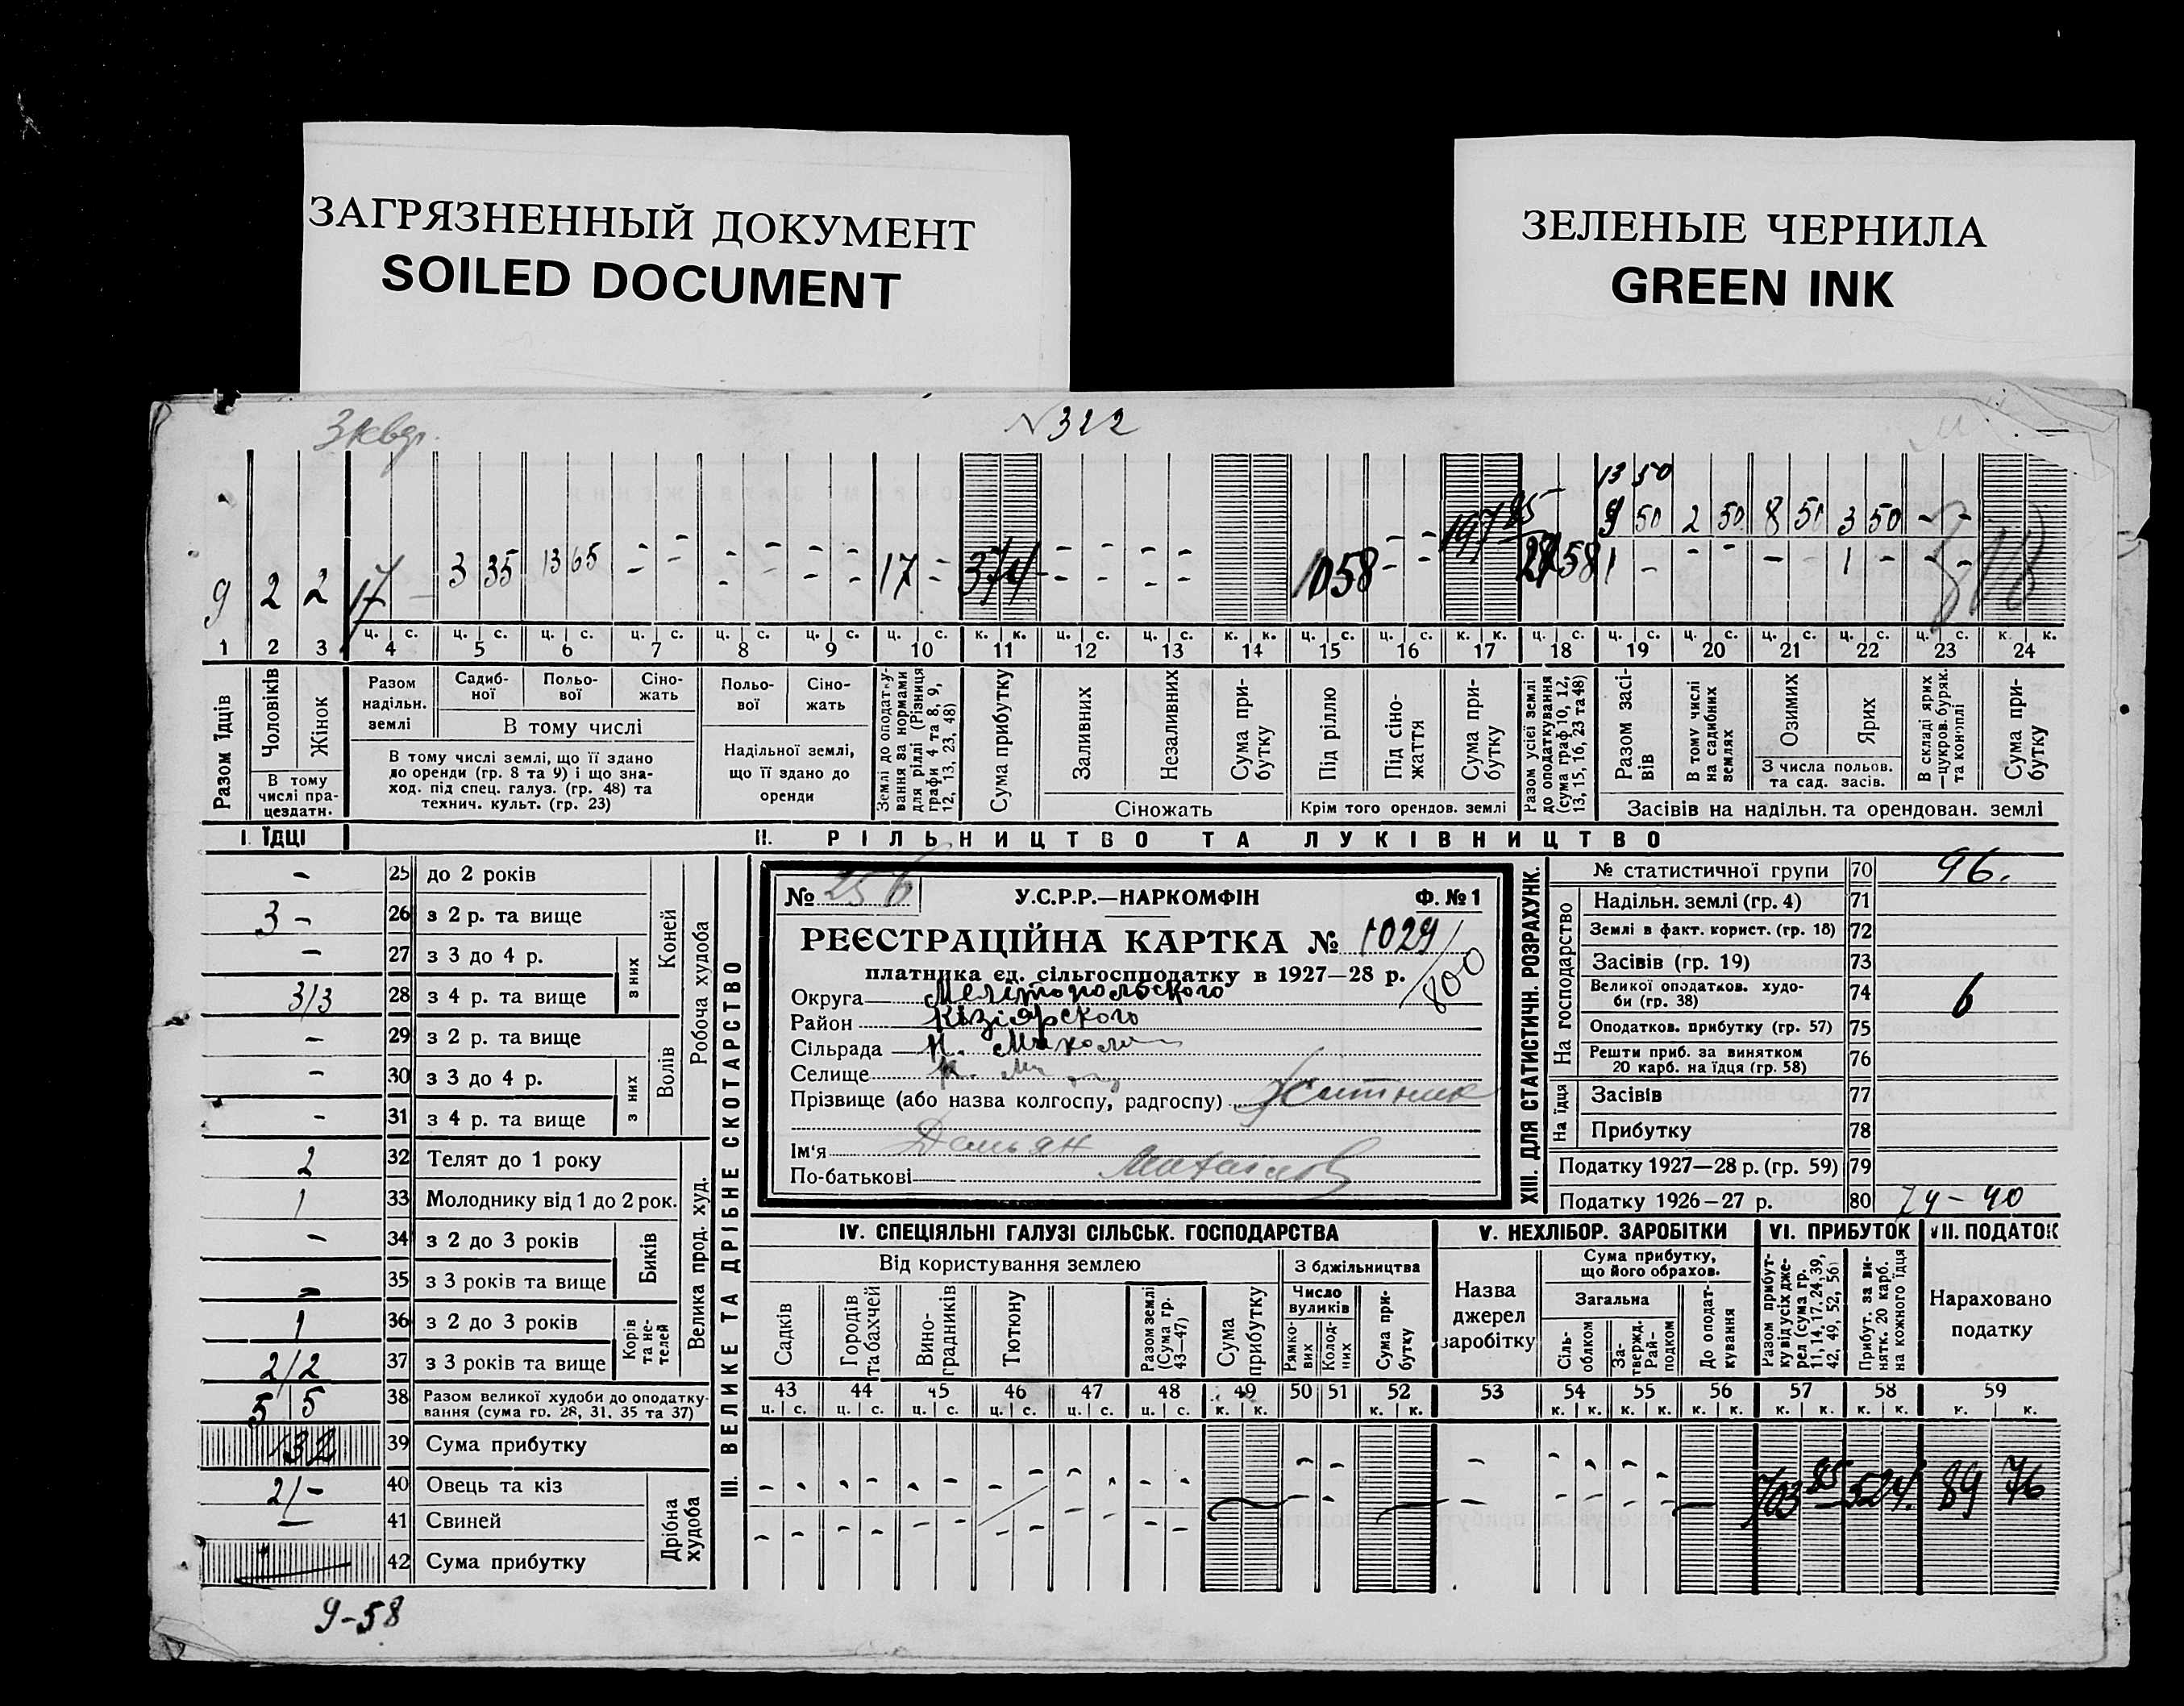 ЗАГРЯЗНЕННЫЙ ДОКУМЕНТ
SOILED DOCUMENT
ЗЕЛЕНЫЕ ЧЕРНИЛА
GREEN INK
№ 322
13 50
9 50 2 50 8 50 3 50 - -
9 2 2 17 - 3 35 13 65 - - - - - - 17 - 374 - - - - 1058 - - 197 85 1 - - - - - 1 - - -
ц. с. ц. с. ц. с. ц. с. ц. с. ц. с. ц. с. к. к. ц. с. ц. с. к. к. ц. с. ц. с. к. к. ц. с. ц. с. ц. с. ц. с. ц. с. ц. с. к. к.
1 2 3 4 5 6 7 8 9 10 11 12 13 14 15 16 17 18 19 20 21 22 23 24
Разом Їдців
Чоловіків
Жінок
В тому числі пра-
цездатн.
Разом
надільн.
землі
Садиб-
ної
Польо-
вої
Сіно-
жать
В тому числі
В тому числі землі, що її здано
до оренди (гр. 8 та 9) і що зна-
ход. під спец. галуз. (гр. 48) та
технич. культ. (гр. 23)
Польо-
вої
Сіно-
жать
Надільної землі,
що її здано до
оренди
Землі до оподатку-
вання за нормами
для ріллі (Різниця
графи 4 та 8, 9,
12, 13, 23, 48)
Сума прибутку
Заливних
Незаливних
Сіножать
Сума при-
бутку
Під ріллю
Під сіно-
жаття
Крім того орендов. землі
Сума при-
бутку
Разом усієї землі
до оподаткування
(сума граф 10, 12,
13, 15, 16, 23 та 48)
Разом засі-
вів
В тому числі
на садибних
землях
Озимих
Ярих
З числа польов.
та сад. засів.
В складі ярих
—цукров. буряк.
та коноплі
Сума при-
бутку
Засівів на надільн. та орендован. землі
I. ЇДЦІ
II. РІЛЬНИЦТВО ТА ЛУКІВНИЦТВО
- 25 до 2 років
3 - 26 з 2 р. та вище
- 27 з 3 до 4 р.
3/3 28 з 4 р. та вище
з них
Коней
- 29 з 2 р. та вище
- 30 з 3 до 4 р.
- 31 з 4 р. та вище
з них
Волів
Робоча худоба
2 32 Телят до 1 року
1 33 Молоднику від 1 до 2 рок.
- 34 з 2 до 3 років
- 35 з 3 років та вище
Биків
1 36 з 2 до 3 років
2/2 37 з 3 років та вище
Корів
та не-
телей
Велика прод. худ.
5 5 38 Разом великої худоби до оподатку-
вання (сума гр. 28, 31, 35 та 37)
132 39 Сума прибутку
2/- 40 Овець та кіз
- 41 Свиней
42 Сума прибутку
Дрібна
худоба
III. ВЕЛИКЕ ТА ДРІБНЕ СКОТАРСТВО
9-58
№ 256
У.С.Р.Р.—НАРКОМФІН
Ф. № 1
РЕЄСТРАЦІЙНА КАРТКА № 1029/
800
платника єд. сільгоспподатку в 1927—28 р.
Округа Мелітопольского
Район Кізіярского
Сільрада Н. Микола
Селище
Прізвище (або назва колгоспу, радгоспу)
Ім'я Демьян
По-батькові Михайлов
XIII. ДЛЯ СТАТИСТИЧН. РОЗРАХУНК.
№ статистичної групи 70 96.
На господарство
Надільн. землі (гр. 4) 71
Землі в факт. корист. (гр. 18) 72
Засівів (гр. 19) 73
Великої оподатков. худо-
би (гр. 38) 74 6
Оподатков. прибутку (гр. 57) 75
Решти приб. за винятком
20 карб. на їдця (гр. 58) 76
На їдця
Засівів 77
Прибутку 78
Податку 1927—28 р. (гр. 59) 79
Податку 1926—27 р. 80 74-40
IV. СПЕЦІЯЛЬНІ ГАЛУЗІ СІЛЬСЬК. ГОСПОДАРСТВА
V. НЕХЛІБОР. ЗАРОБІТКИ
VI. ПРИБУТОК
VII. ПОДАТОК
Від користування землею
З бджільництва
Садків
Городів
та бахчей
Вино-
градників
Тютюну
Разом землі
(Сума гр.
43—47)
Сума
прибутку
Число
вуликів
Рямко-
вих
Колод-
них
Сума при-
бутку
Назва
джерел
заробітку
Сума прибутку,
що його обрахов.
Загальна
Сіль-
облаком
За-
тверд.
Рай-
подком
До оподат-
кування
Разом прибут-
ку від усіх дже-
рел (сума гр.
11, 14, 17, 24, 39,
42, 49, 52, 56)
Прибут. за ви-
нятк. 20 карб.
на кожного їдця
Нараховано
податку
43 44 45 46 47 48 49 50 51 52 53 54 55 56 57 58 59
ц. с. ц. с. ц. с. ц. с. ц. с. ц. с. к. к. к. к. к. к. к. к. к. к. к. к. к. к.
703 85 524. 89 76